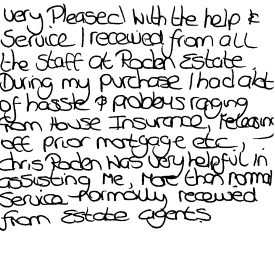 very Pleased with the help &
Service I receeved from all
the staff at Roden Estate.
During my purchase I had alot
of hassle & problems ranging
from House Insurance, releasing
off prior mortgage etc,
Chris Roden was very helpful in
assisting me, More than normal
Service normally receeved
from Estate agents